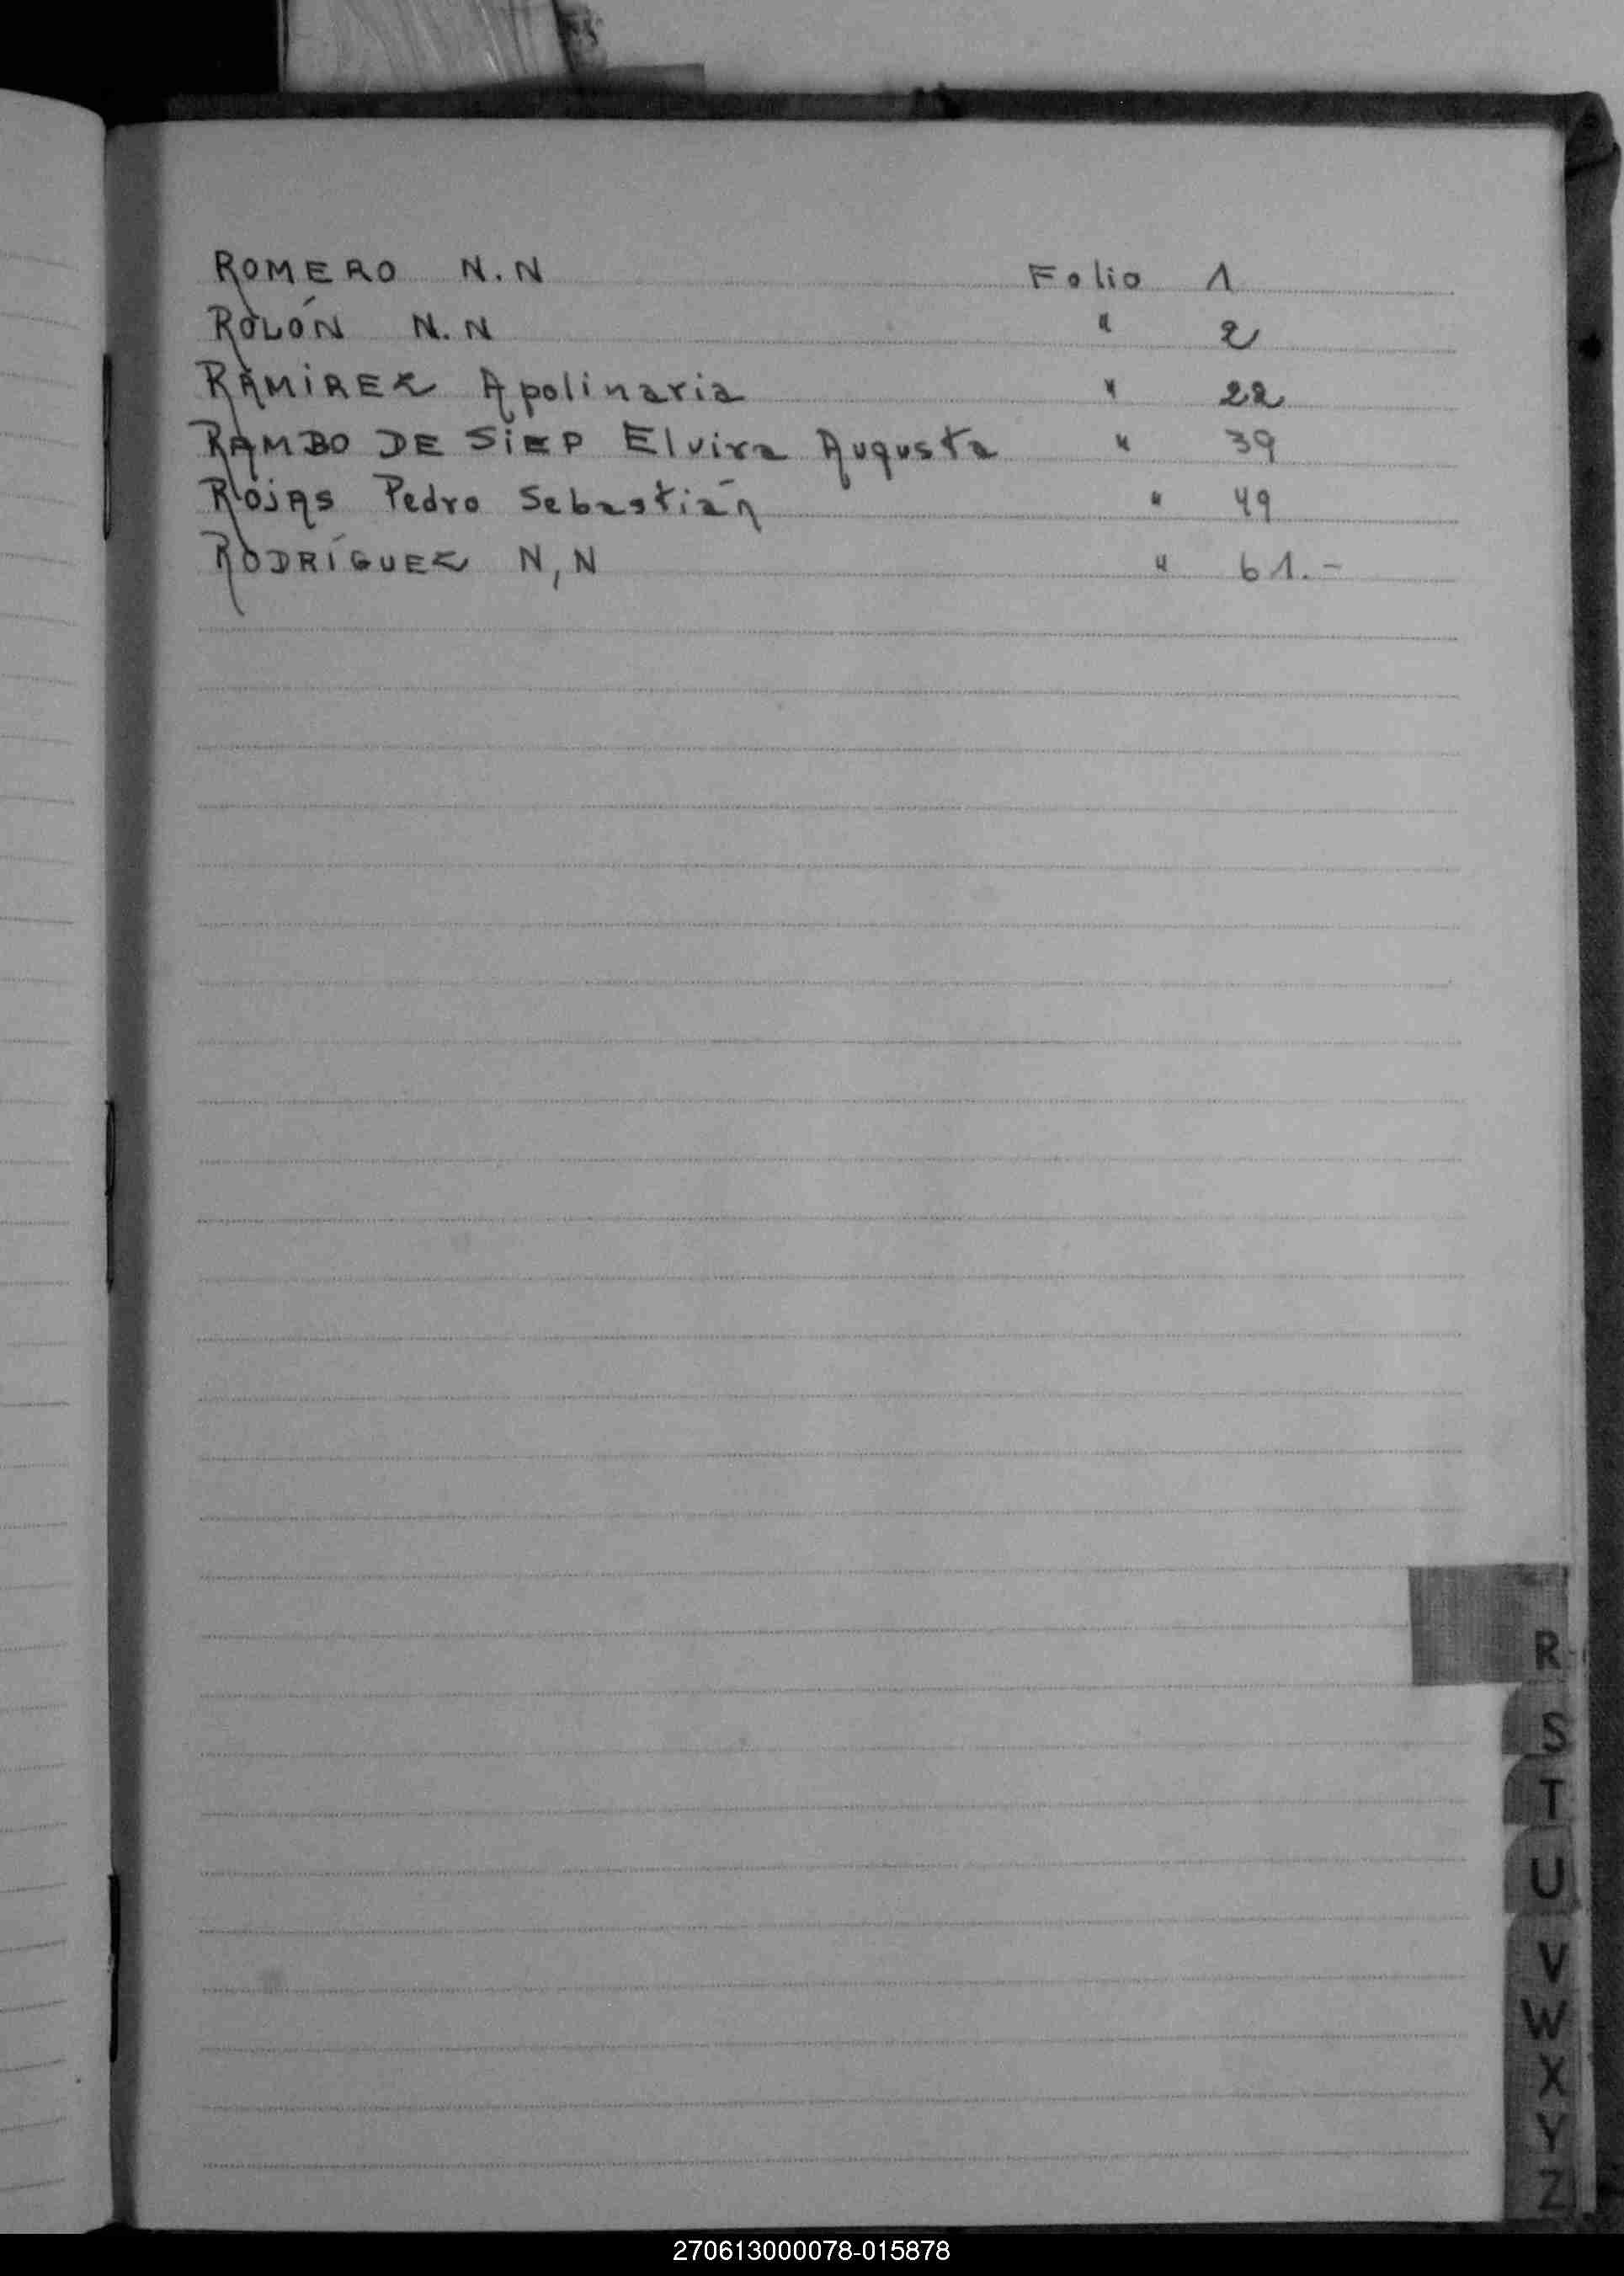 ROMERO N.N Folio 1
ROLÓN N.N " 2
RAMIREZ Apolinaria " 22
RAMBO DE SIEP Elvira Augusta " 39
ROJAS Pedro Sebastián " 49
RODRÍGUEZ N,N " 61.-
R
S
T
U
V
W
X
Y
Z
270613000078-015878